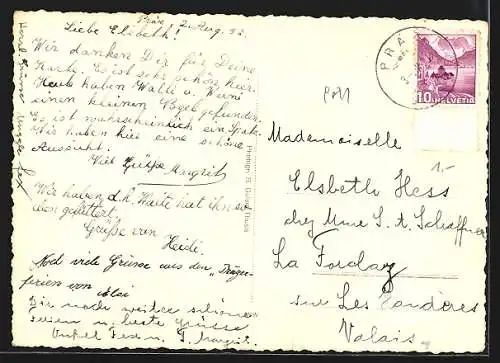 Präz, 2. Aug. 32.
Liebe Elsbeth!
Wir danken Dir für Deine
Karte. Es ist sehr schön hier.
Heute haben Walti u. Werni
einen kleinen Vogel gefunden.
Es ist wahrscheinlich ein Spatz.
Wir haben hier eine schöne
Aussicht.
Viel Grüsse Margrit
Wir haben d.h. Walti hat ihn
ben gefüttert.
Grüsse von
Heidi.
Noch viele Grüsse aus den
ferien von Elsi
Dir noch weiter schöne
Ferien u. beste Grüsse
Onkel
Herzl. Grüsse
PRÄZ
10 HELVETIA
1.-
Mademoiselle
Elsbeth Hess
chez Mme S. A. Schaffner
La Forclaz
sur Les Haudères
Valais